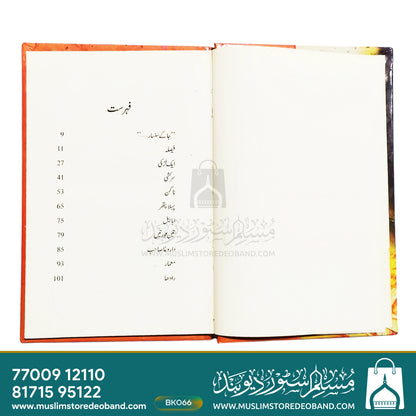 فہرست
9 "جاگے سنسار...."
11 فیصلہ
27 ایک لڑکی
41 سرکشی
53 ناگن
65 پہلا پتھر
75
79 تین عورتیں
85 داروغا صاحب
93 معمار
101
مسلم سٹور دیوبند
WWW.MUSLIMSTOREDEOBAND.COM
77009 12110
81715 95122
www.muslimstoredeoband.com
BK066
مسلم سٹور دیوبند
WWW.MUSLIMSTOREDEOBAND.COM